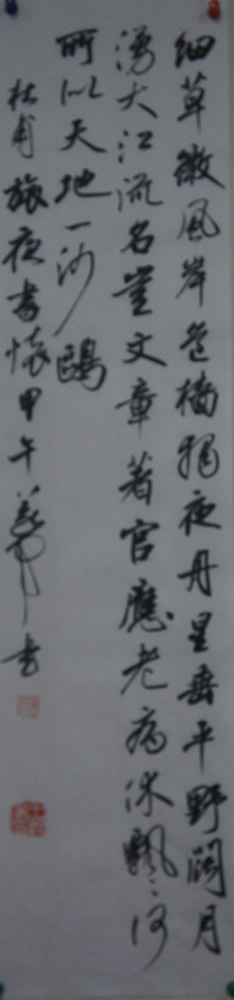 细草微风岸危樯独夜舟星垂平野阔月
涌大江流名岂文章著官应老病休飘飘何
所以天地一沙鸥
杜甫旅夜书怀甲午 书